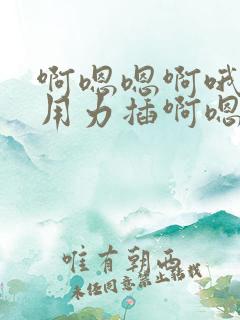 啊嗯嗯啊哦
用力插啊嗯
唯有朝西
未经同意禁止转载